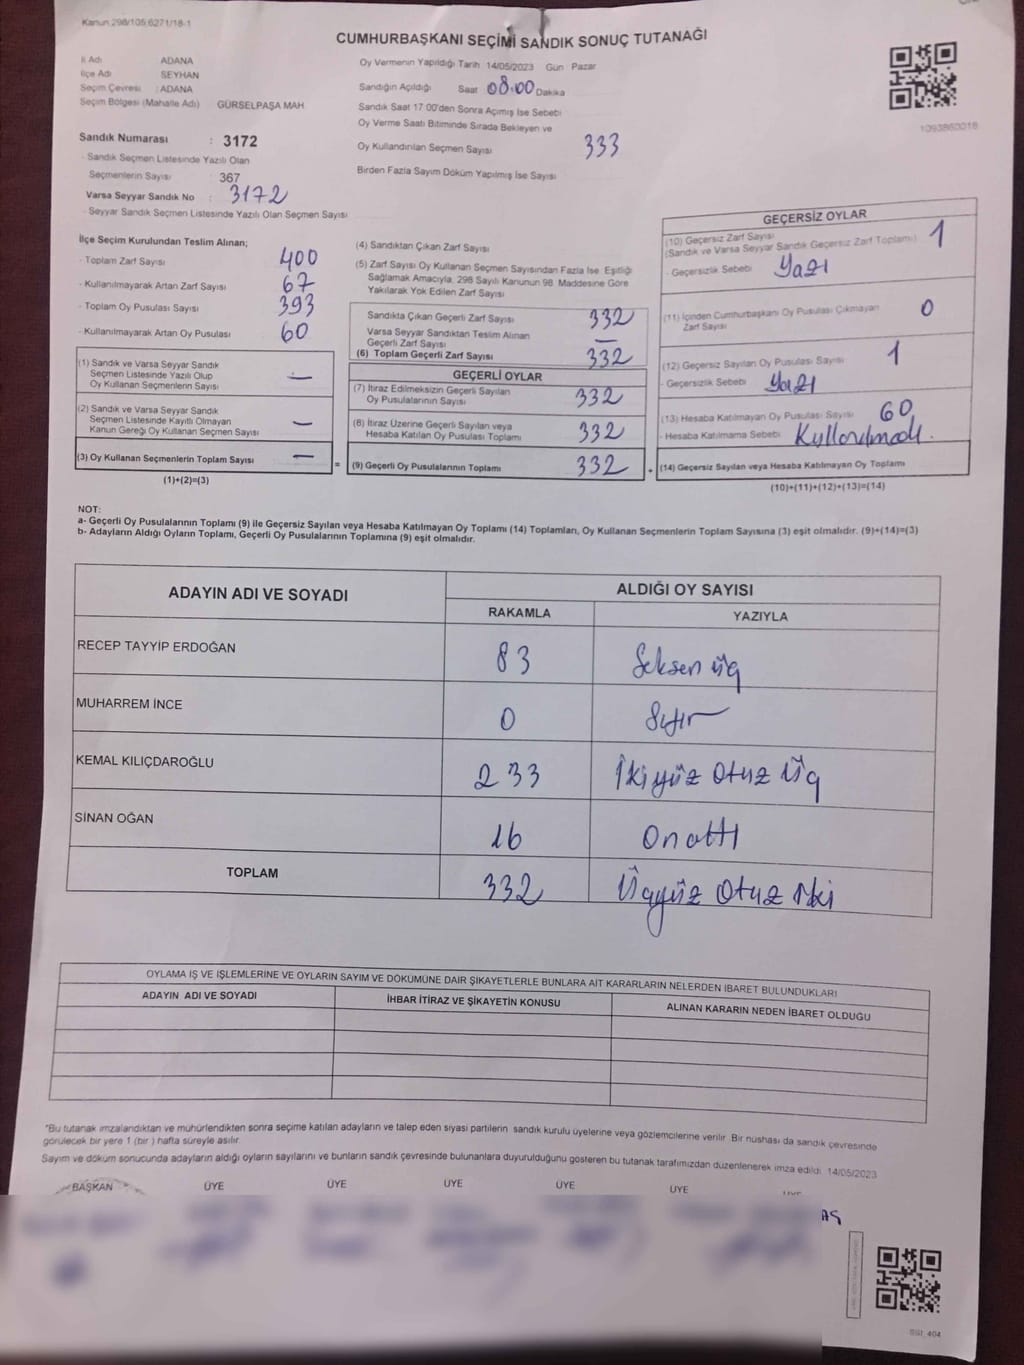 Kanun 298/105,6271/18-1
CUMHURBAŞKANI SEÇİMİ SANDIK SONUÇ TUTANAĞI
İl Adı ADANA
İlçe Adı SEYHAN
Seçim Çevresi : ADANA
Seçim Bölgesi (Mahalle Adı) GÜRSELPAŞA MAH
Oy Vermenin Yapıldığı Tarih 14/05/2023 Gün Pazar
Sandığın Açıldığı Saat 08:00 Dakika
Sandık Saat 17 00'den Sonra Açımış İse Sebebi
Oy Verme Saati Bitiminde Sırada Bekleyen ve
Oy Kullandırılan Seçmen Sayısı 333
Birden Fazla Sayım Döküm Yapılmış İse Sayısı
1093860018
Sandık Numarası : 3172
- Sandık Seçmen Listesinde Yazılı Olan
Seçmenlerin Sayısı : 367
Varsa Seyyar Sandık No : 3172
- Seyyar Sandık Seçmen Listesinde Yazılı Olan Seçmen Sayısı
İlçe Seçim Kurulundan Teslim Alınan;
- Toplam Zarf Sayısı 400
- Kullanılmayarak Artan Zarf Sayısı 67
- Toplam Oy Pusulası Sayısı 393
- Kullanılmayarak Artan Oy Pusulası 60
(1) Sandık ve Varsa Seyyar Sandık
Seçmen Listesinde Yazılı Olup
Oy Kullanan Seçmenlerin Sayısı —
(2) Sandık ve Varsa Seyyar Sandık
Seçmen Listesinde Kayıtlı Olmayan
Kanun Gereği Oy Kullanan Seçmen Sayısı —
(3) Oy Kullanan Seçmenlerin Toplam Sayısı —
(1)+(2)=(3)
(4) Sandıktan Çıkan Zarf Sayısı
(5) Zarf Sayısı Oy Kullanan Seçmen Sayısından Fazla İse Eşitliği
Sağlamak Amacıyla, 298 Sayılı Kanunun 98. Maddesine Göre
Yakılarak Yok Edilen Zarf Sayısı
Sandıkta Çıkan Geçerli Zarf Sayısı 332
Varsa Seyyar Sandıktan Teslim Alınan
Geçerli Zarf Sayısı —
(6) Toplam Geçerli Zarf Sayısı 332
GEÇERLİ OYLAR
(7) İtiraz Edilmeksizin Geçerli Sayılan
Oy Pusulalarının Sayısı 332
(8) İtiraz Üzerine Geçerli Sayılan veya
Hesaba Katılan Oy Pusulası Toplamı 332
= (9) Geçerli Oy Pusulalarının Toplamı 332
GEÇERSİZ OYLAR
(10) Geçersiz Zarf Sayısı
(Sandık ve Varsa Seyyar Sandık Geçersiz Zarf Toplamı) 1
- Geçersizlik Sebebi Yazı
(11) İçinden Cumhurbaşkanı Oy Pusulası Çıkmayan
Zarf Sayısı 0
(12) Geçersiz Sayılan Oy Pusulası Sayısı 1
- Geçersizlik Sebebi Yazı
(13) Hesaba Katılmayan Oy Pusulası Sayısı 60
- Hesaba Katılmama Sebebi Kullanılmadı.
+ (14) Geçersiz Sayılan veya Hesaba Katılmayan Oy Toplamı
(10)+(11)+(12)+(13)=(14)
NOT:
a- Geçerli Oy Pusulalarının Toplamı (9) ile Geçersiz Sayılan veya Hesaba Katılmayan Oy Toplamı (14) Toplamları, Oy Kullanan Seçmenlerin Toplam Sayısına (3) eşit olmalıdır. (9)+(14)=(3)
b- Adayların Aldığı Oyların Toplamı, Geçerli Oy Pusulalarının Toplamına (9) eşit olmalıdır.
ADAYIN ADI VE SOYADI ALDIĞI OY SAYISI
RAKAMLA YAZIYLA
RECEP TAYYİP ERDOĞAN 83 Seksen üç
MUHARREM İNCE 0 Sıfır
KEMAL KILIÇDAROĞLU 233 İkiyüz Otuz Üç
SİNAN OĞAN 16 On altı
TOPLAM 332 Üçyüz Otuz İki
OYLAMA İŞ VE İŞLEMLERİNE VE OYLARIN SAYIM VE DÖKÜMÜNE DAİR ŞİKAYETLERLE BUNLARA AİT KARARLARIN NELERDEN İBARET BULUNDUKLARI
ADAYIN ADI VE SOYADI İHBAR İTİRAZ VE ŞİKAYETİN KONUSU ALINAN KARARIN NEDEN İBARET OLDUĞU
*Bu tutanak imzalandıktan ve mühürlendikten sonra seçime katılan adayların ve talep eden siyasi partilerin sandık kurulu üyelerine veya gözlemcilerine verilir. Bir nüshası da sandık çevresinde
görülecek bir yere 1 (bir ) hafta süreyle asılır.
Sayım ve döküm sonucunda adayların aldığı oyların sayılarını ve bunların sandık çevresinde bulunanlara duyurulduğunu gösteren bu tutanak tarafımızdan düzenlenerek imza edildi. 14/05/2023
BAŞKAN ÜYE ÜYE ÜYE ÜYE ÜYE
AŞ